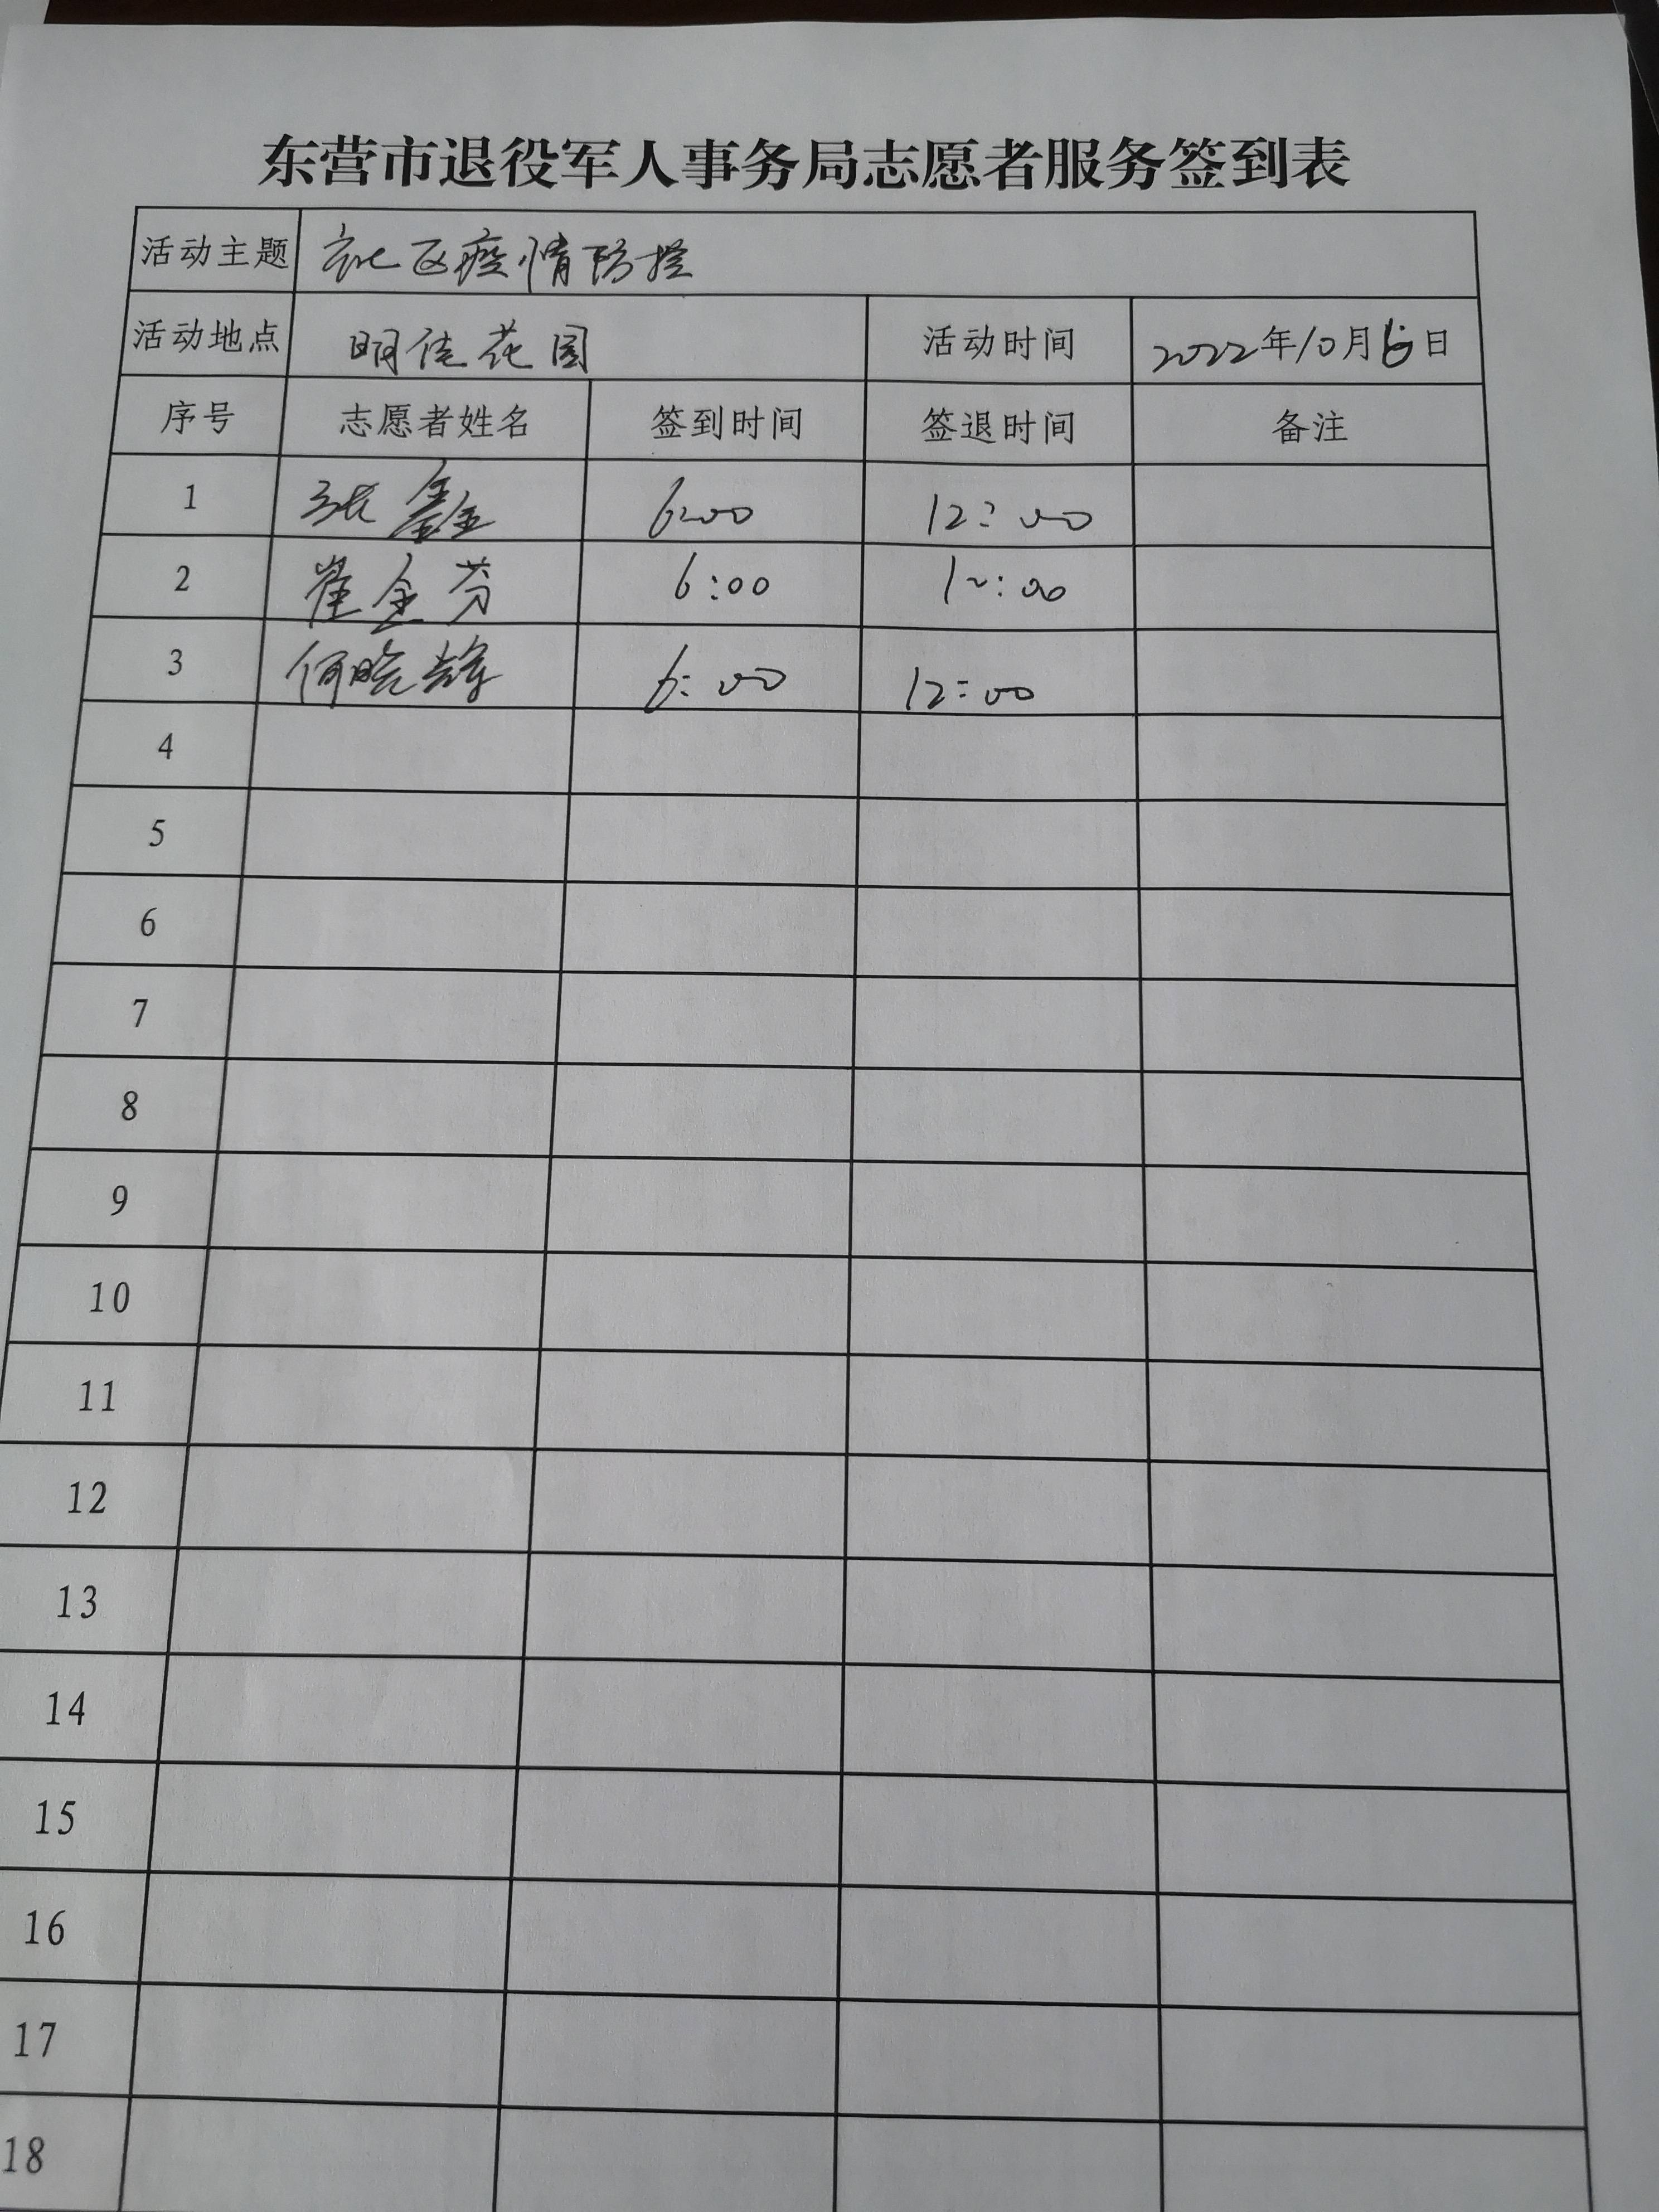 东营市退役军人事务局志愿者服务签到表
活动主题 社区疫情防控
活动地点 明佳花园 活动时间 2022年10月6日
序号 志愿者姓名 签到时间 签退时间 备注
1 张鑫 6:00 12:00
2 崔金芬 6:00 12:00
3 何晓 6:00 12:00
4
5
6
7
8
9
10
11
12
13
14
15
16
17
18